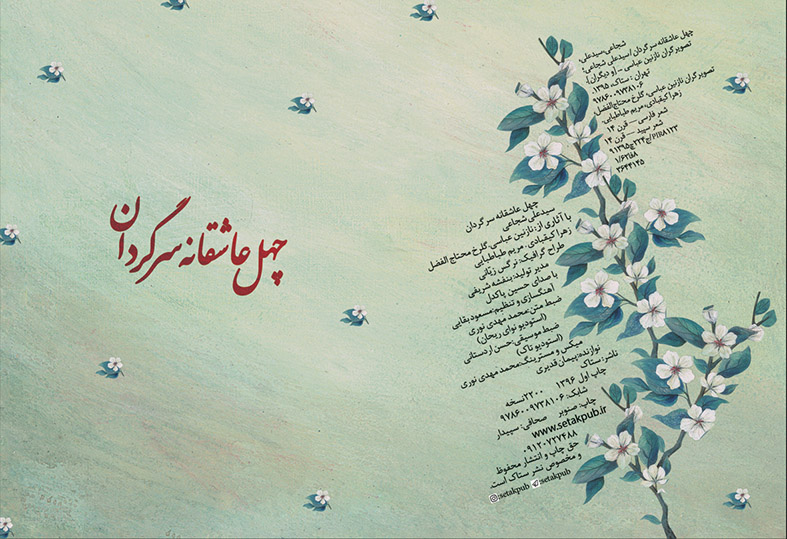 شجاعی، سیدعلی،
چهل عاشقانه سرگردان / سیدعلی شجاعی؛
تصویرگران نازنین عباسی - (و دیگران).
تهران : ستاک، ۱۳۹۵.
۹۷۸۶۰۰۹۷۳۸۱۰۶
تصویرگران نازنین عباسی، گلرخ محتاج‌الفضل،
زهرا کیقبادی، مریم طباطبایی.
شعر فارسی — قرن ۱۴
شعر سپید — قرن ۱۴
۸فا۱/۶۲
۳۶۴۴۱۴۵
چهل عاشقانه سرگردان
سیدعلی شجاعی
با آثاری از: نازنین عباسی، گلرخ محتاج الفضل
زهرا کیقبادی، مریم طباطبایی
طراح گرافیک: نرگس زیّانی
مدیر تولید: بنفشه شریفی
با صدای حسین پاکدل
آهنگسازی و تنظیم: مسعود بقایی
ضبط متن: محمد مهدی نوری
(استودیو نوای ریحان)
ضبط موسیقی: حسن اردستانی
(استودیو تاک)
میکس و مسترینگ: محمد مهدی نوری
نوازنده: پیمان قدیری
ناشر: ستاک
چاپ اول ۱۳۹۶ ۲۲۰۰نسخه
شابک: ۹۷۸۶۰۰۹۷۳۸۱۰۶
چاپ: صنوبر صحافی: سپیدار
www.setakpub.ir
۰۹۱۲۰۷۲۷۴۸۸
حق چاپ و انتشار محفوظ
و مخصوص نشر ستاک است.
:setakpub :setakpub
چهل عاشقانه سرگردان